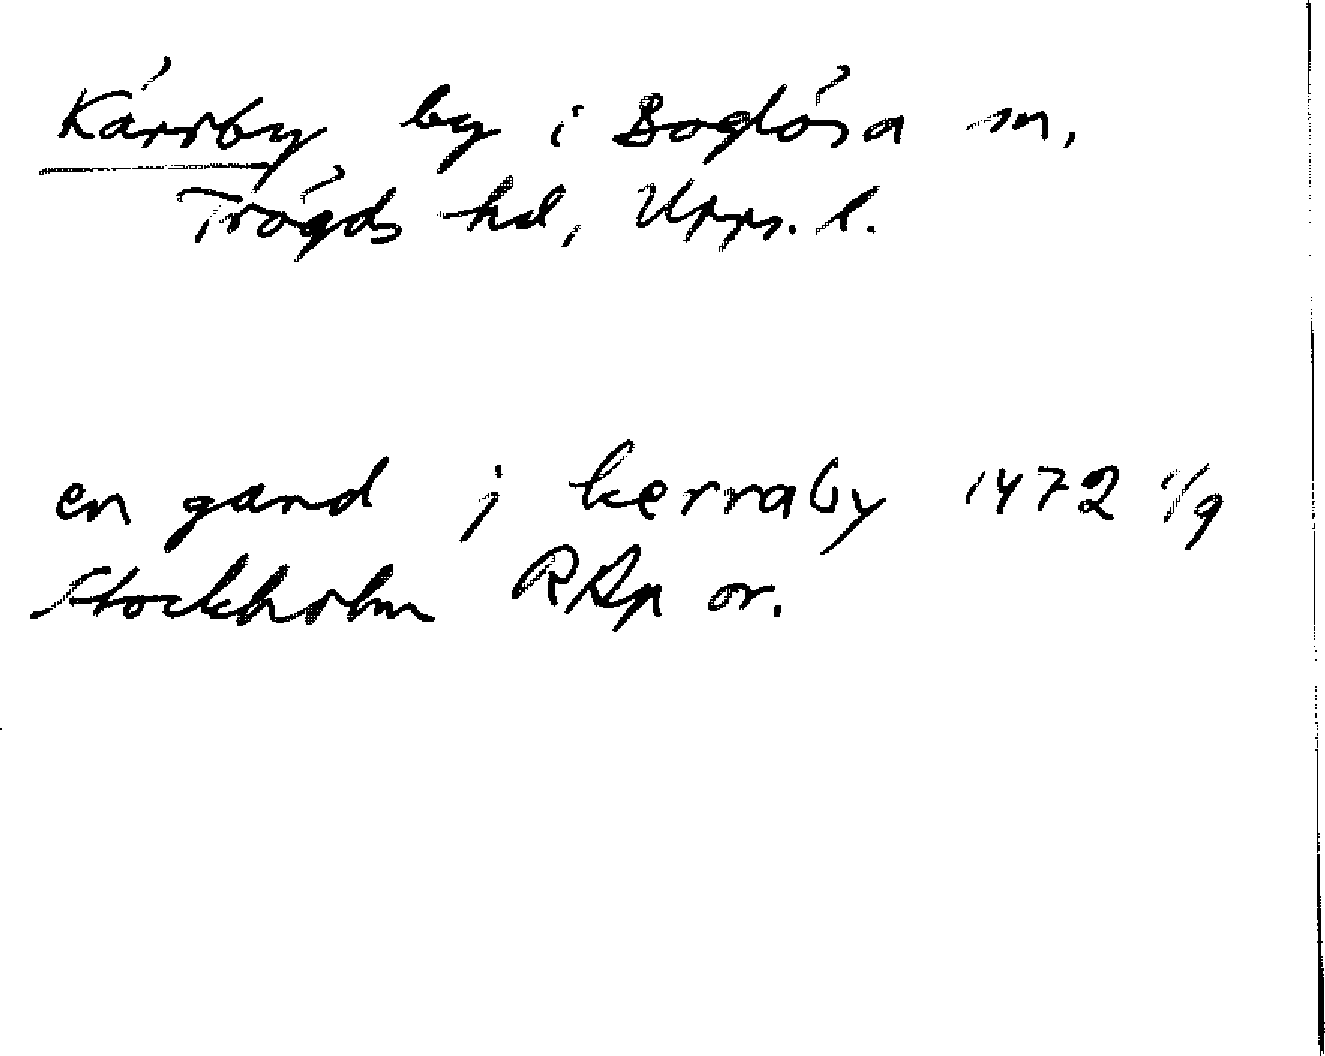 Kärrby by i Boglösa sn,
Trögds hd, Upps. l.
en gard j kerraby 1472 1/9
Stockholm RAp or.